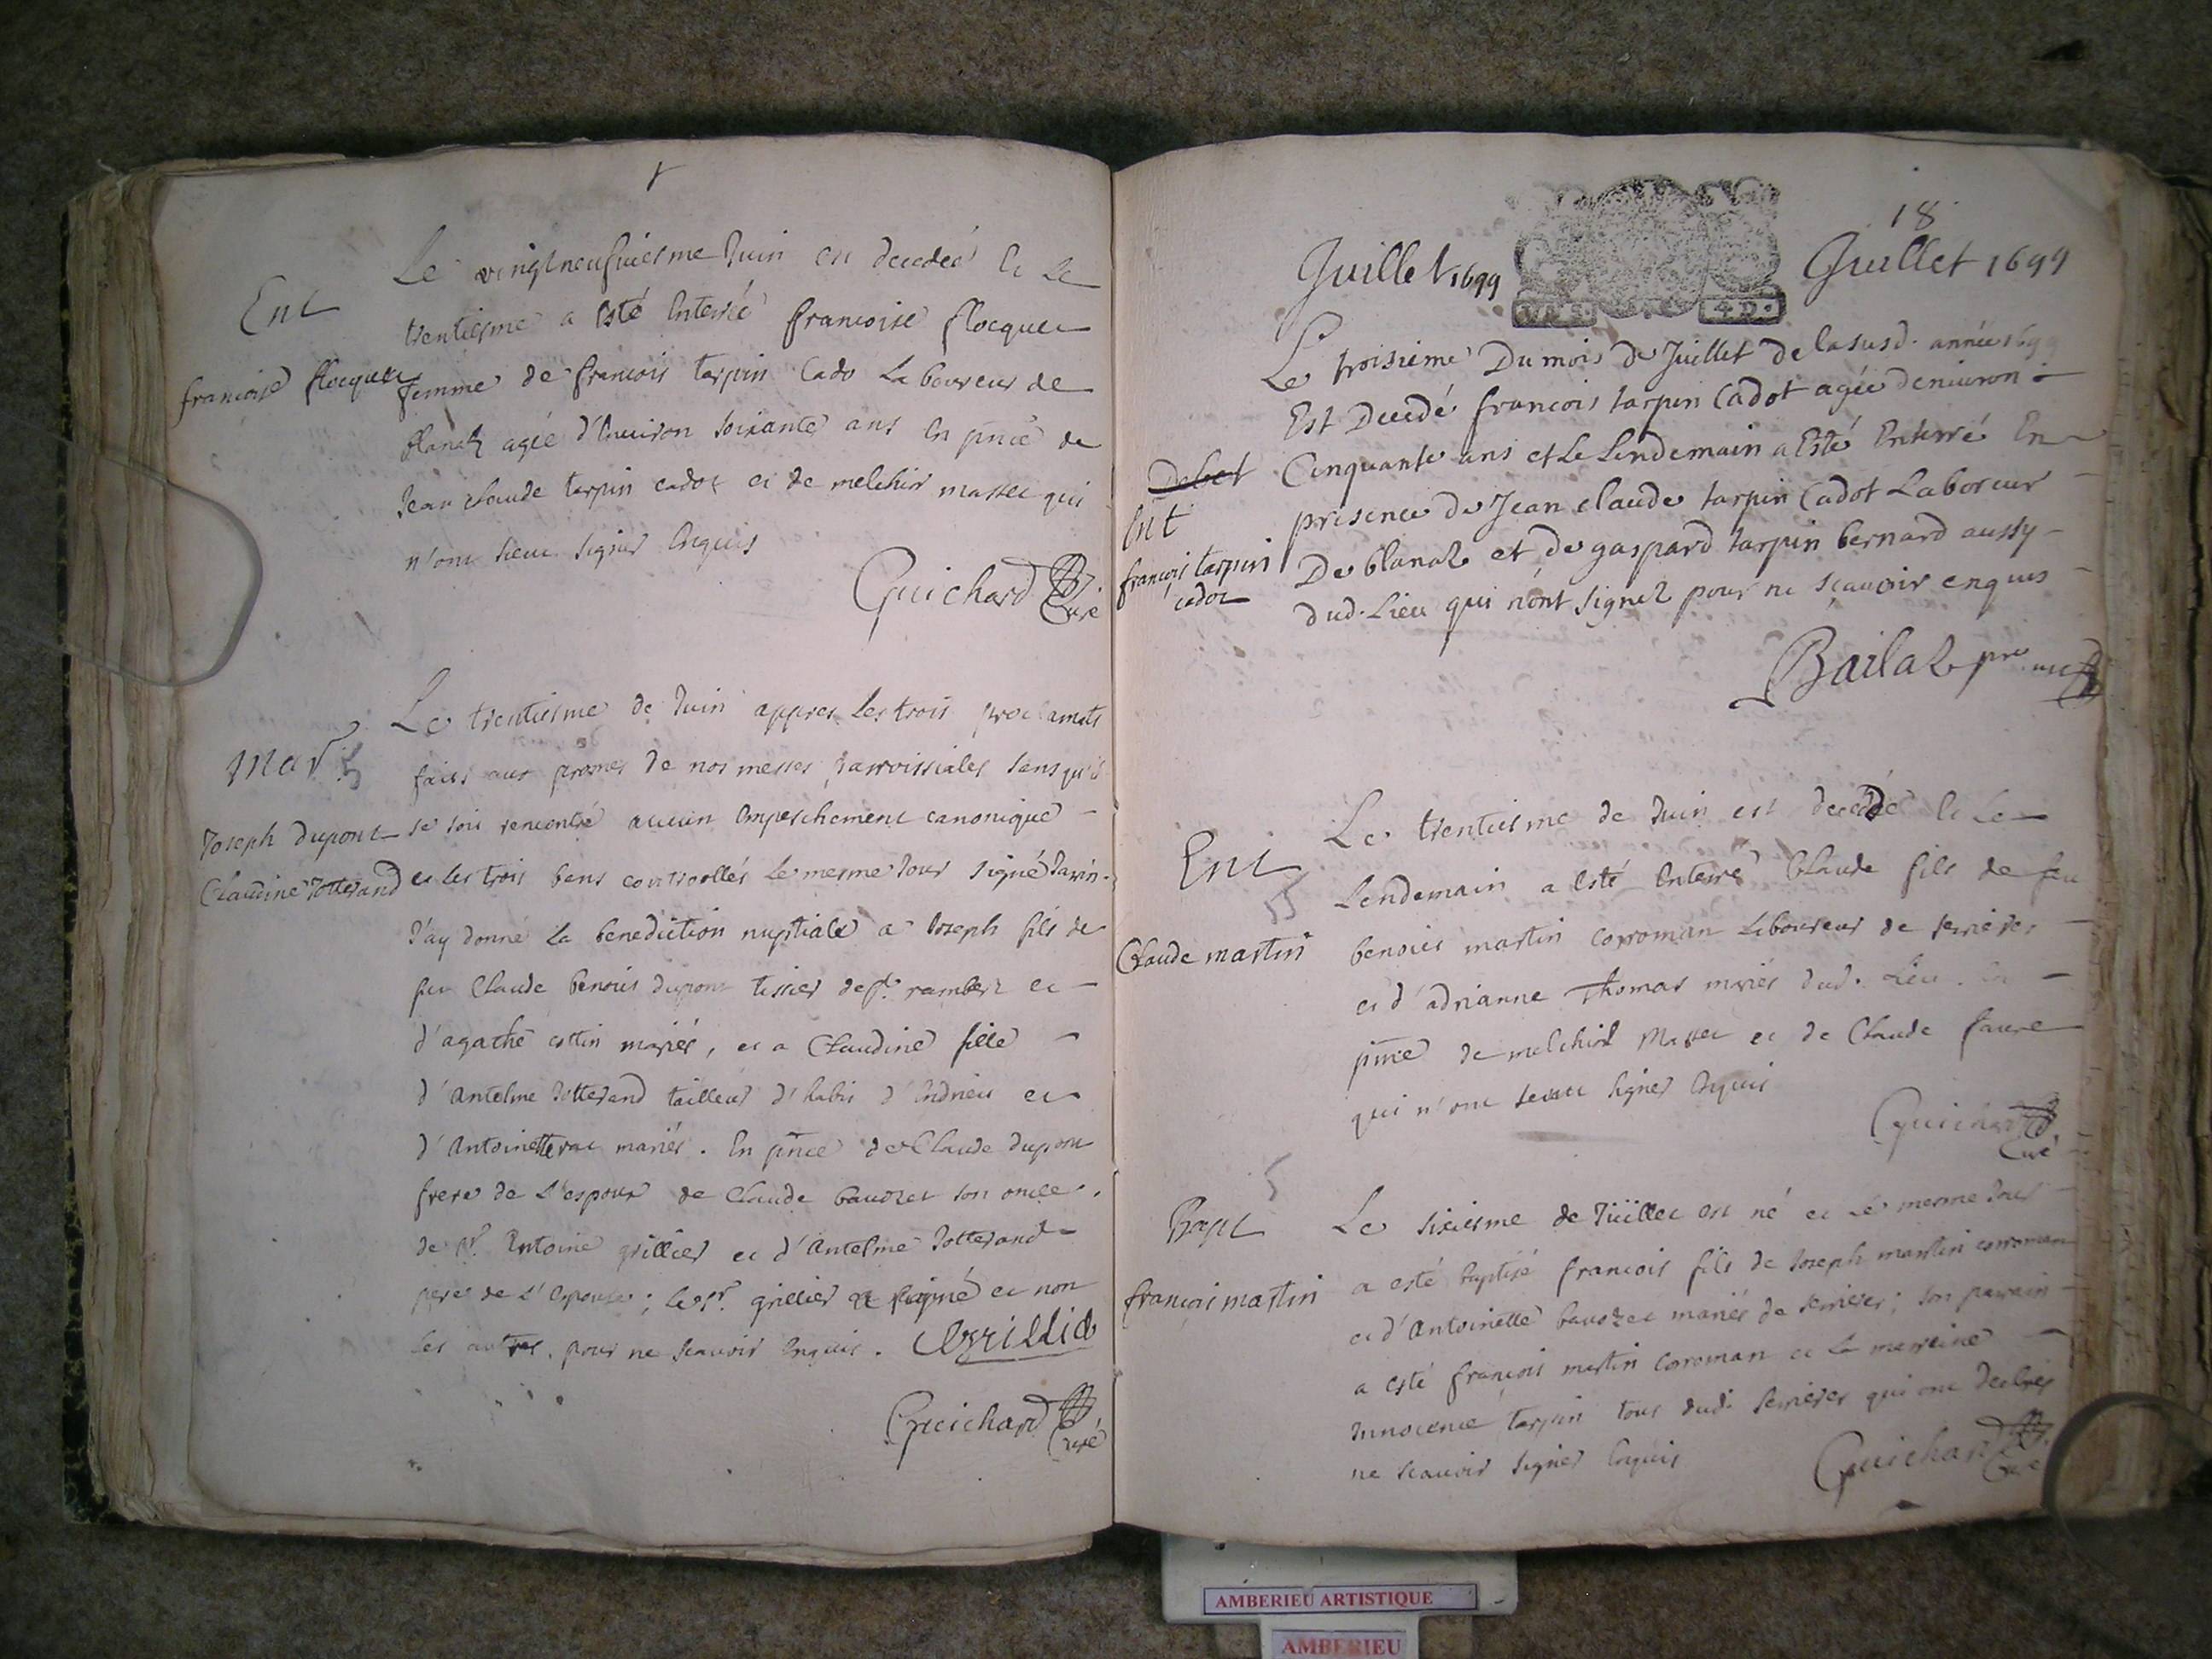 Ent
francoise flocquet
Le vingtneufuiesme Juin est decedeé et Le
trentiesme a esté Enterrée francoise flocquet
femme de francois tarpin Cado Laboureur de
blanaz agée d'Enuiron soixante ans En pnce de
Jean claude tarpin cadot et de melchior masset qui
n'ont sceu signer Enquis
Guichard Curé
Mar
Joseph dupont
Claudine Jotterand
Le trentiesme de Juin appres les trois proclamats
faits aux prosnes de nos messes parroissiales sans qu'il
se soit rencontré aucun Empeschement canonique
et les trois bans controollés Le mesme Jour signé
J'ay donné La benediction nuptiale a Joseph fils de
feu Claude benoist dupont tissier de st. rambert et
d'agathe cottin mariés, et a Claudine fille
d'Antelme Jotterand tailleur d'habis d'Indrieu et
d'Antoinette mariés. En pnce de Claude dupont
frere de L'espoux de Claude bauozet son oncle,
de sr. Antoine grillier et d'Antelme Jotterand
pere de L'Espouse; Le sr. grillier a signé et non
les autres, pour ne scauoir Enquis. Grillier
Guichard Curé
18
Juillet 1699 Juillet 1699
4D.
Ent
françois tarpin
cadot
Le troisieme Du mois de Juillet de la susd. année 1699
Est Decedé francois tarpin Cadot agée denuiron
Cinquante ans et Le Lendemain a Esté Enterré En
presence de Jean claude tarpin Cadot Laboreur
De blanaz et de gaspard tarpin bernard aussy
dud. Lieu qui n'ont signez pour ne sçauoir enquis
Bailaz pre
Ent
15
Claude martin
Le trentiesme de Juin est decédé et Le
Lendemain a esté Enterré Claude fils de feu
benoict martin corroman Laboureur de serrieres
et d'adrianne Thomas mariés dud. Lieu. En
pnce de melchior Masset et de Claude faure
qui n'ont sceu signer Enquis
Guichard
Curé
Bapt
françois martin
Le sixiesme de Juillet est né et Le mesme Jour
a esté baptisé francois fils de Joseph martin corroman
et d'Antoinette bauozet mariés de serrieres; son parrain
a esté françois martin corroman et La marreine
Innocence tarpin tous dud. serrieres qui ont declaré
ne scauoir signer Enquis
Guichard Curé
AMBERIEU ARTISTIQUE
AMBERIEU